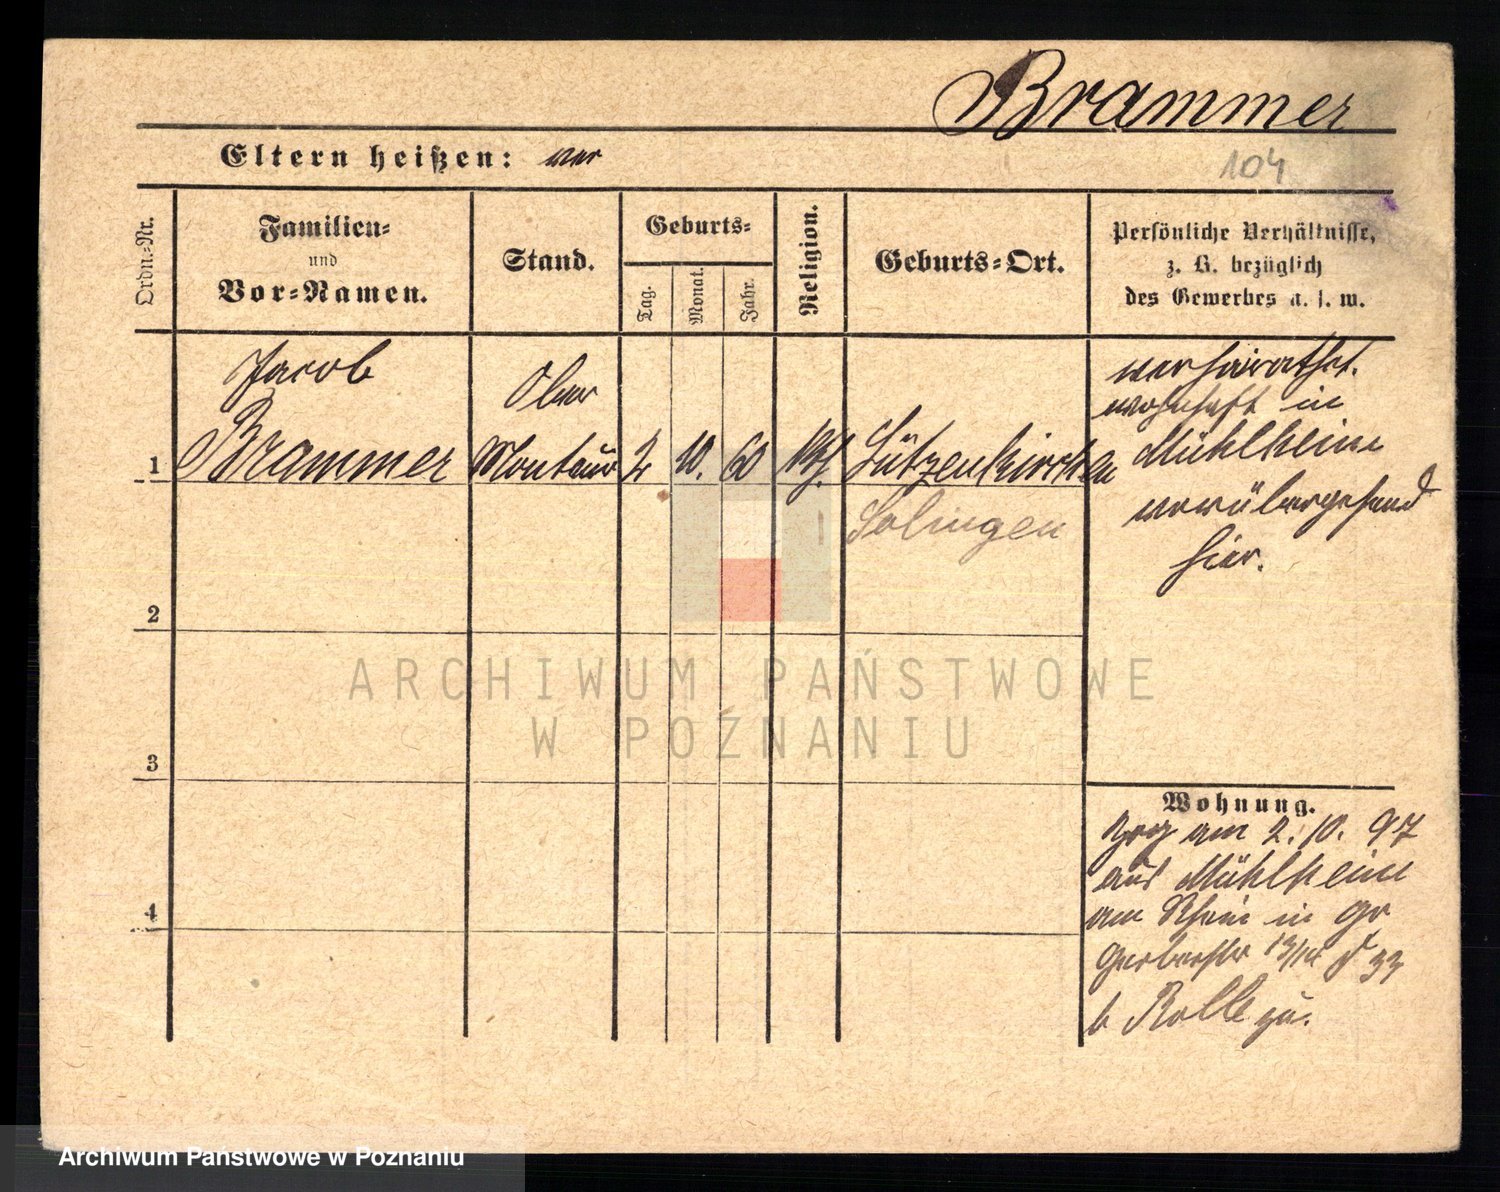 Brammer
Eltern heißen:
104
Ordn.-Nr.
Familien-
und
Vor-Namen.
Stand.
Geburts-
Tag.
Monat.
Jahr.
Religion.
Geburts-Ort.
Persönliche Verhältnisse,
z. B. bezüglich
des Gewerbes u. s. w.
Jacob
Brammer
Ober
Monteur
1
2
10.
60
Lützenkirchen
Solingen
verheirathet.
wohnhaft in
Mühlheim
vorübergehend
hier.
2
3
4
Wohnung.
Zgz am 2. 10. 97
aus Mühlheim
am Rhein in Gr
Gerberstr 13/14 33
b Rolle zu.
ARCHIWUM PAŃSTWOWE
W POZNANIU
Archiwum Państwowe w Poznaniu